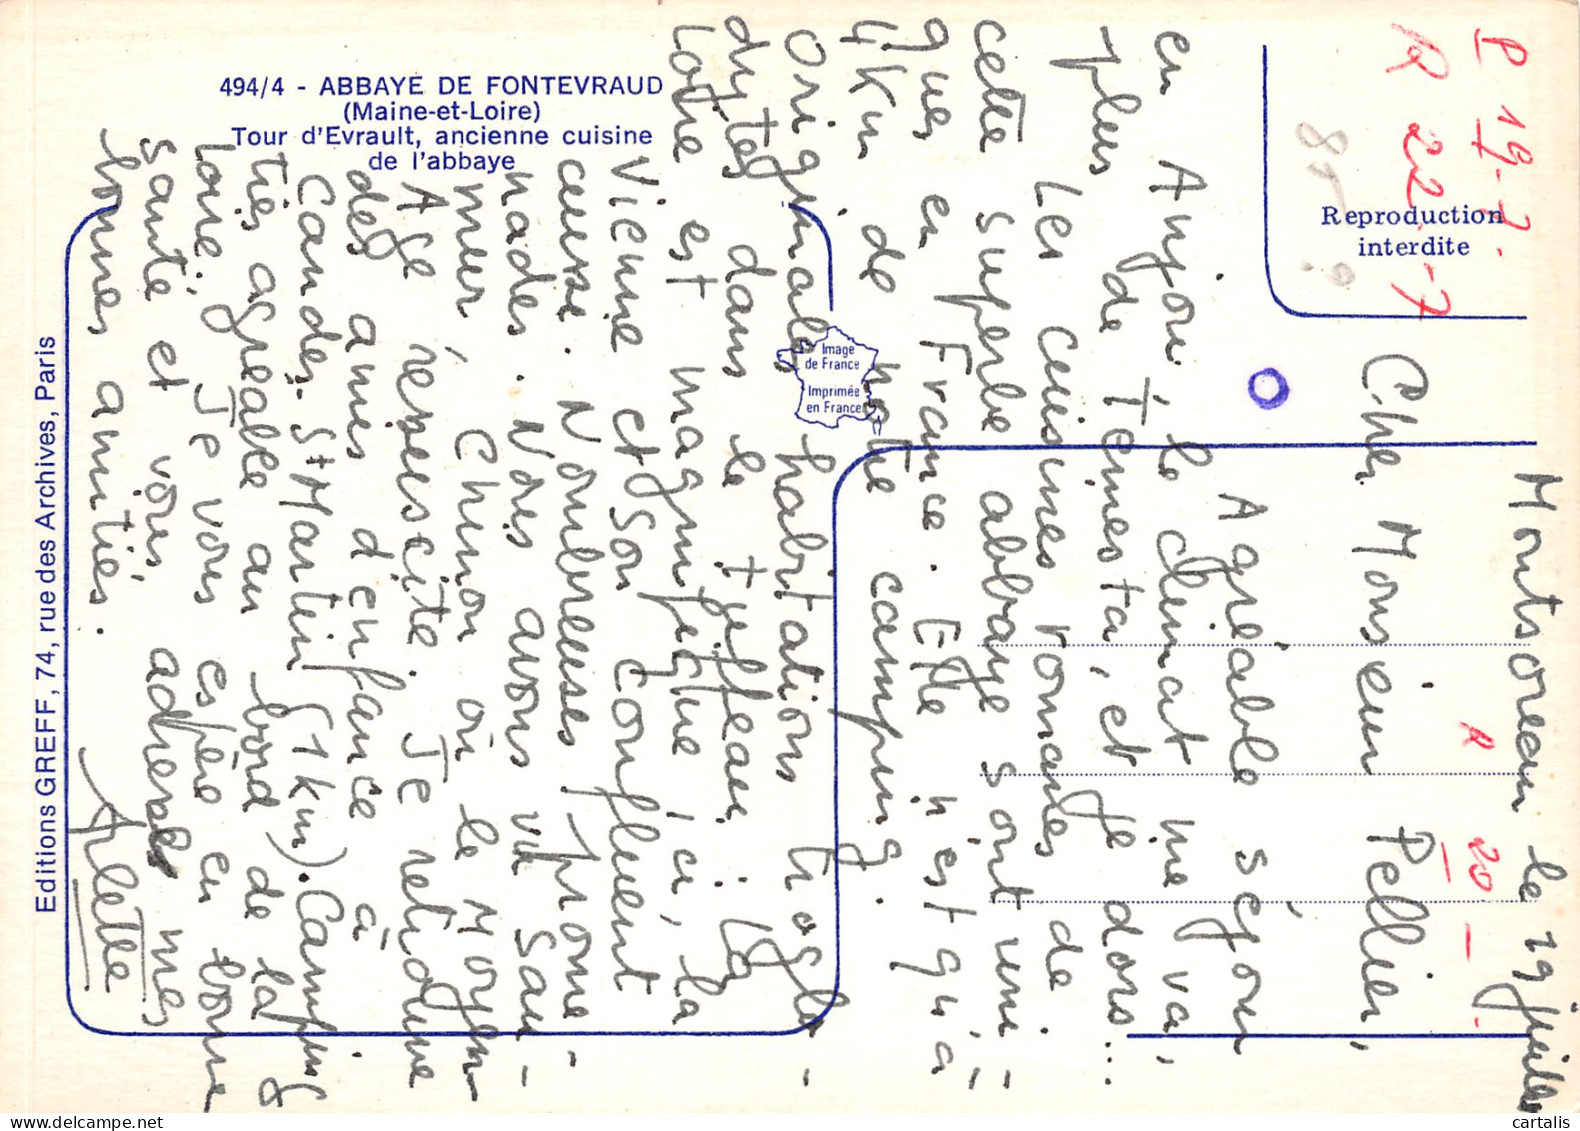 494/4 - ABBAYE DE FONTEVRAUD
(Maine-et-Loire)
Tour d'Evrault, ancienne cuisine
de l'abbaye
Reproduction
interdite
Editions GREFF, 74, rue des Archives, Paris
Image
de France
Imprimée
en France
P 19-7-
R 22-7
85-9
R 20 -
Montsoreau le 19 juillet
Cher Monsieur Pellier,
Agréable séjour
en Anjou, le climat me va,
plus de Temesta, et je dors...
Les cuisines romanes de
cette superbe abbaye sont uni=
ques en France. Elle n'est qu'à
4km de notre camping.
Originales habitations troglo-
dytes dans le tuffeau. La
Loire est magnifique ici, la
Vienne et son confluent
aussi. Nombreuses prome-
nades. Nous avons vu Sau-
mur, Chinon où le Moyen-
Age ressuscite. Je retrouve
des amis d'enfance à
Candes-St Martin (1km). Camping
très agréable au bord de la
Loire. Je vous espère en bonne
santé et vous adresse mes
bonnes amitiés.
Arlette
cartalis